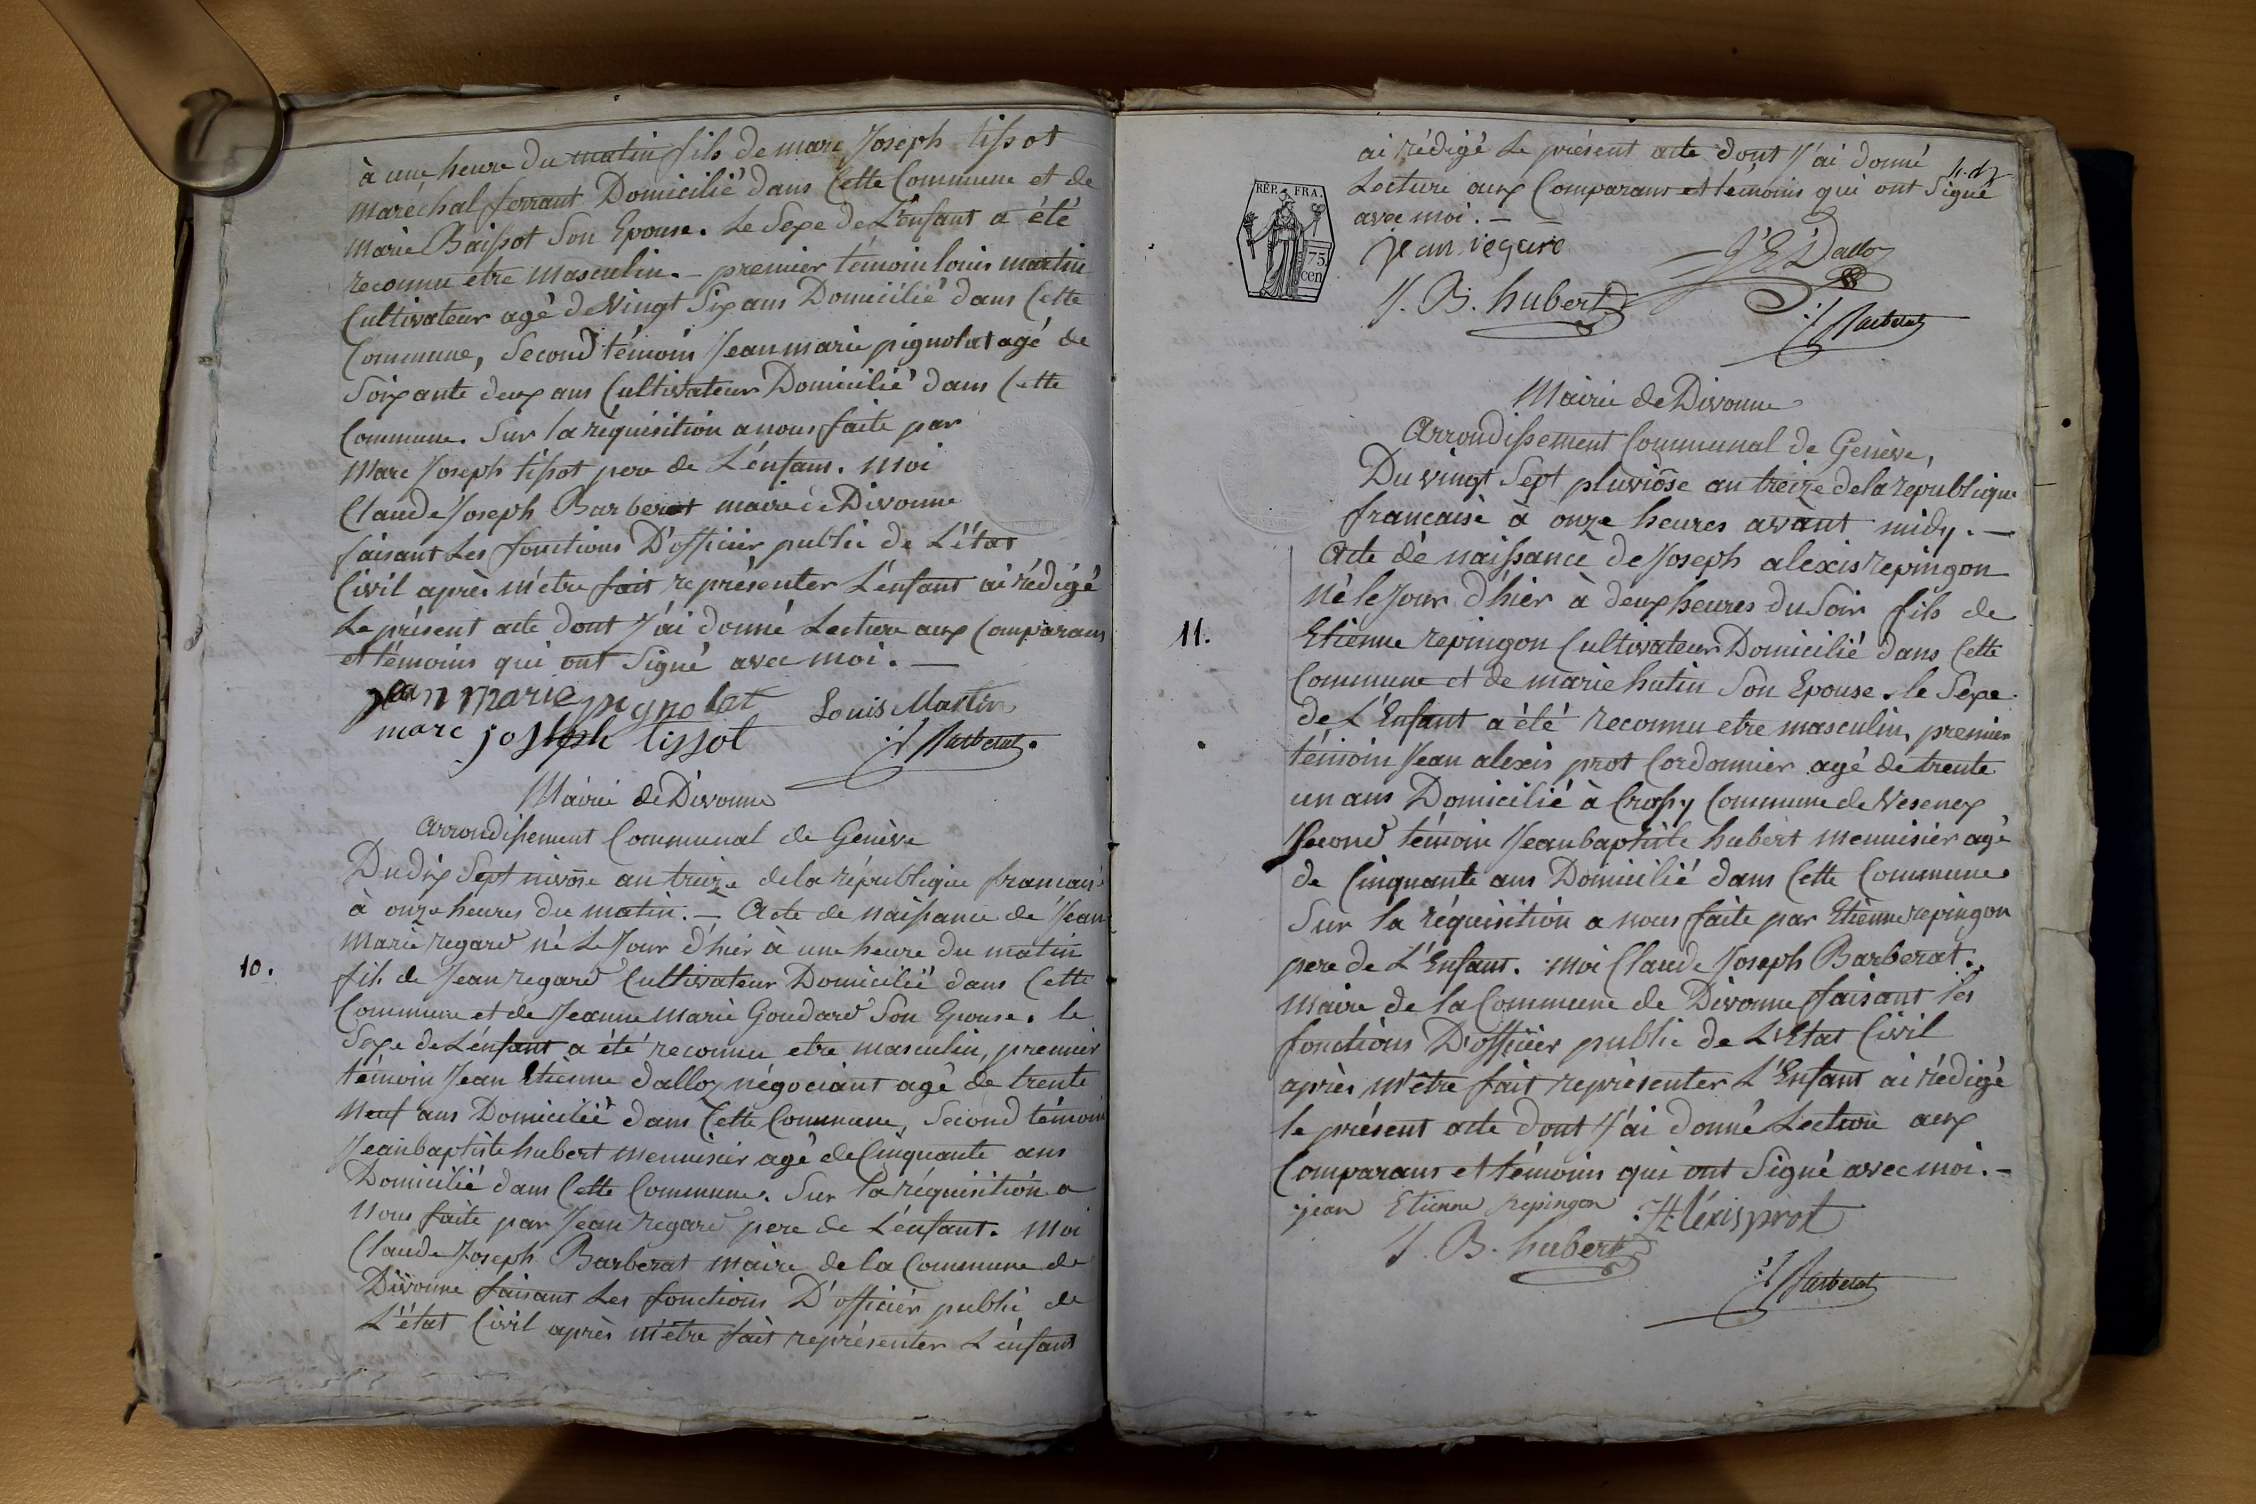 à une heure du matin fils de marc Joseph tissot
maréchal ferrant Domicilié dans Cette Commune et de
marie Baissot Son Epouse. Le Sexe de L'enfant a été
reconnu être masculin. – premier témoin louis martin
Cultivateur agé de Vingt Six ans Domicilié dans Cette
Commune, Second témoin Jean marie pignolat agé de
Soixante deux ans Cultivateur Domicilié dans Cette
Commune. Sur la réquisition a nous faite par
Marc Joseph tissot pere de L'énfant. Moi
Claude Joseph Barberat maire de Divonne
faisant Les fonctions D'officier public de L'état
Civil après m'être fait représenter L'énfant ai rédigé
Le présent acte dont J'ai donné Lecture aux Comparans
et témoins qui ont Signé avec moi. –
jean marie pignolat Louis Martin
marc joseph tissot Barberat.
Mairie de Divonne
Arrondissement Communal de Genève
Du dix Sept nivôse an treize de la république francaise
à onze heures du matin. – Acte de naissance de Jean
10.
Marie regard né Le Jour d'hier à une heure du matin
fils de Jean regard Cultivateur Domicilié dans Cette
Commune et de Jeanne Marie Goudard Son Epouse. le
Sexe de L'énfant a été reconnu etre masculin, premier
témoin Jean Etienne dalloz négociant agé de trente
Neuf ans Domicilié dans Cette Commune, Second témoin
Jean baptiste hubert menuisier agé de Cinquante ans
Domicilié dans Cette Commune. Sur la réquisition a
Nous faite par Jean regard pere de L'énfant. Moi
Claude Joseph Barberat maire de la Commune de
Divonne faisant Les fonctions D'officier public de
L'état Civil après m'être fait représenter L'énfant
ai rédigé Le présent acte dont J'ai donné
Lecture aux Comparans et témoins qui ont Signé
avec moi. –
RÉP. FRA.
75
cen
jean regard J E Dalloz
J. B. hubert Barberat
Mairie de Divonne
Arrondissement Communal de Genève,
Du vingt Sept pluviôse an treize de la république
francaise à onze heures avant midy. –
Acte de naissance de Joseph alexis repingon
né le Jour d'hier à deux heures du Soir fils de
11.
Etienne repingon Cultivateur Domicilié dans Cette
Commune et de marie hutin Son Epouse. le Séxe
de L'Enfant a été reconnu etre masculin, premier
témoin Jean alexis prot Cordonnier agé de trente
un ans Domicilié à Crassy Commune de Vesenex
Second témoin Jean baptiste hubert menuisier agé
de Cinquante ans Domicilié dans Cette Commune
Sur la réquisition a nous faite par Etienne repingon
pere de L'Enfant. moi Claude Joseph Barberat.
Maire de la Commune de Divonne faisant les
fonctions D'officier public de L'Etat Civil
après m'être fait représenter L'Enfant ai rédigé
le présent acte dont J'ai donné Lecture aux
Comparans et témoins qui ont Signé avec moi. –
jean Etienne repingon Aléxis prot
J. B. hubert
Barberat